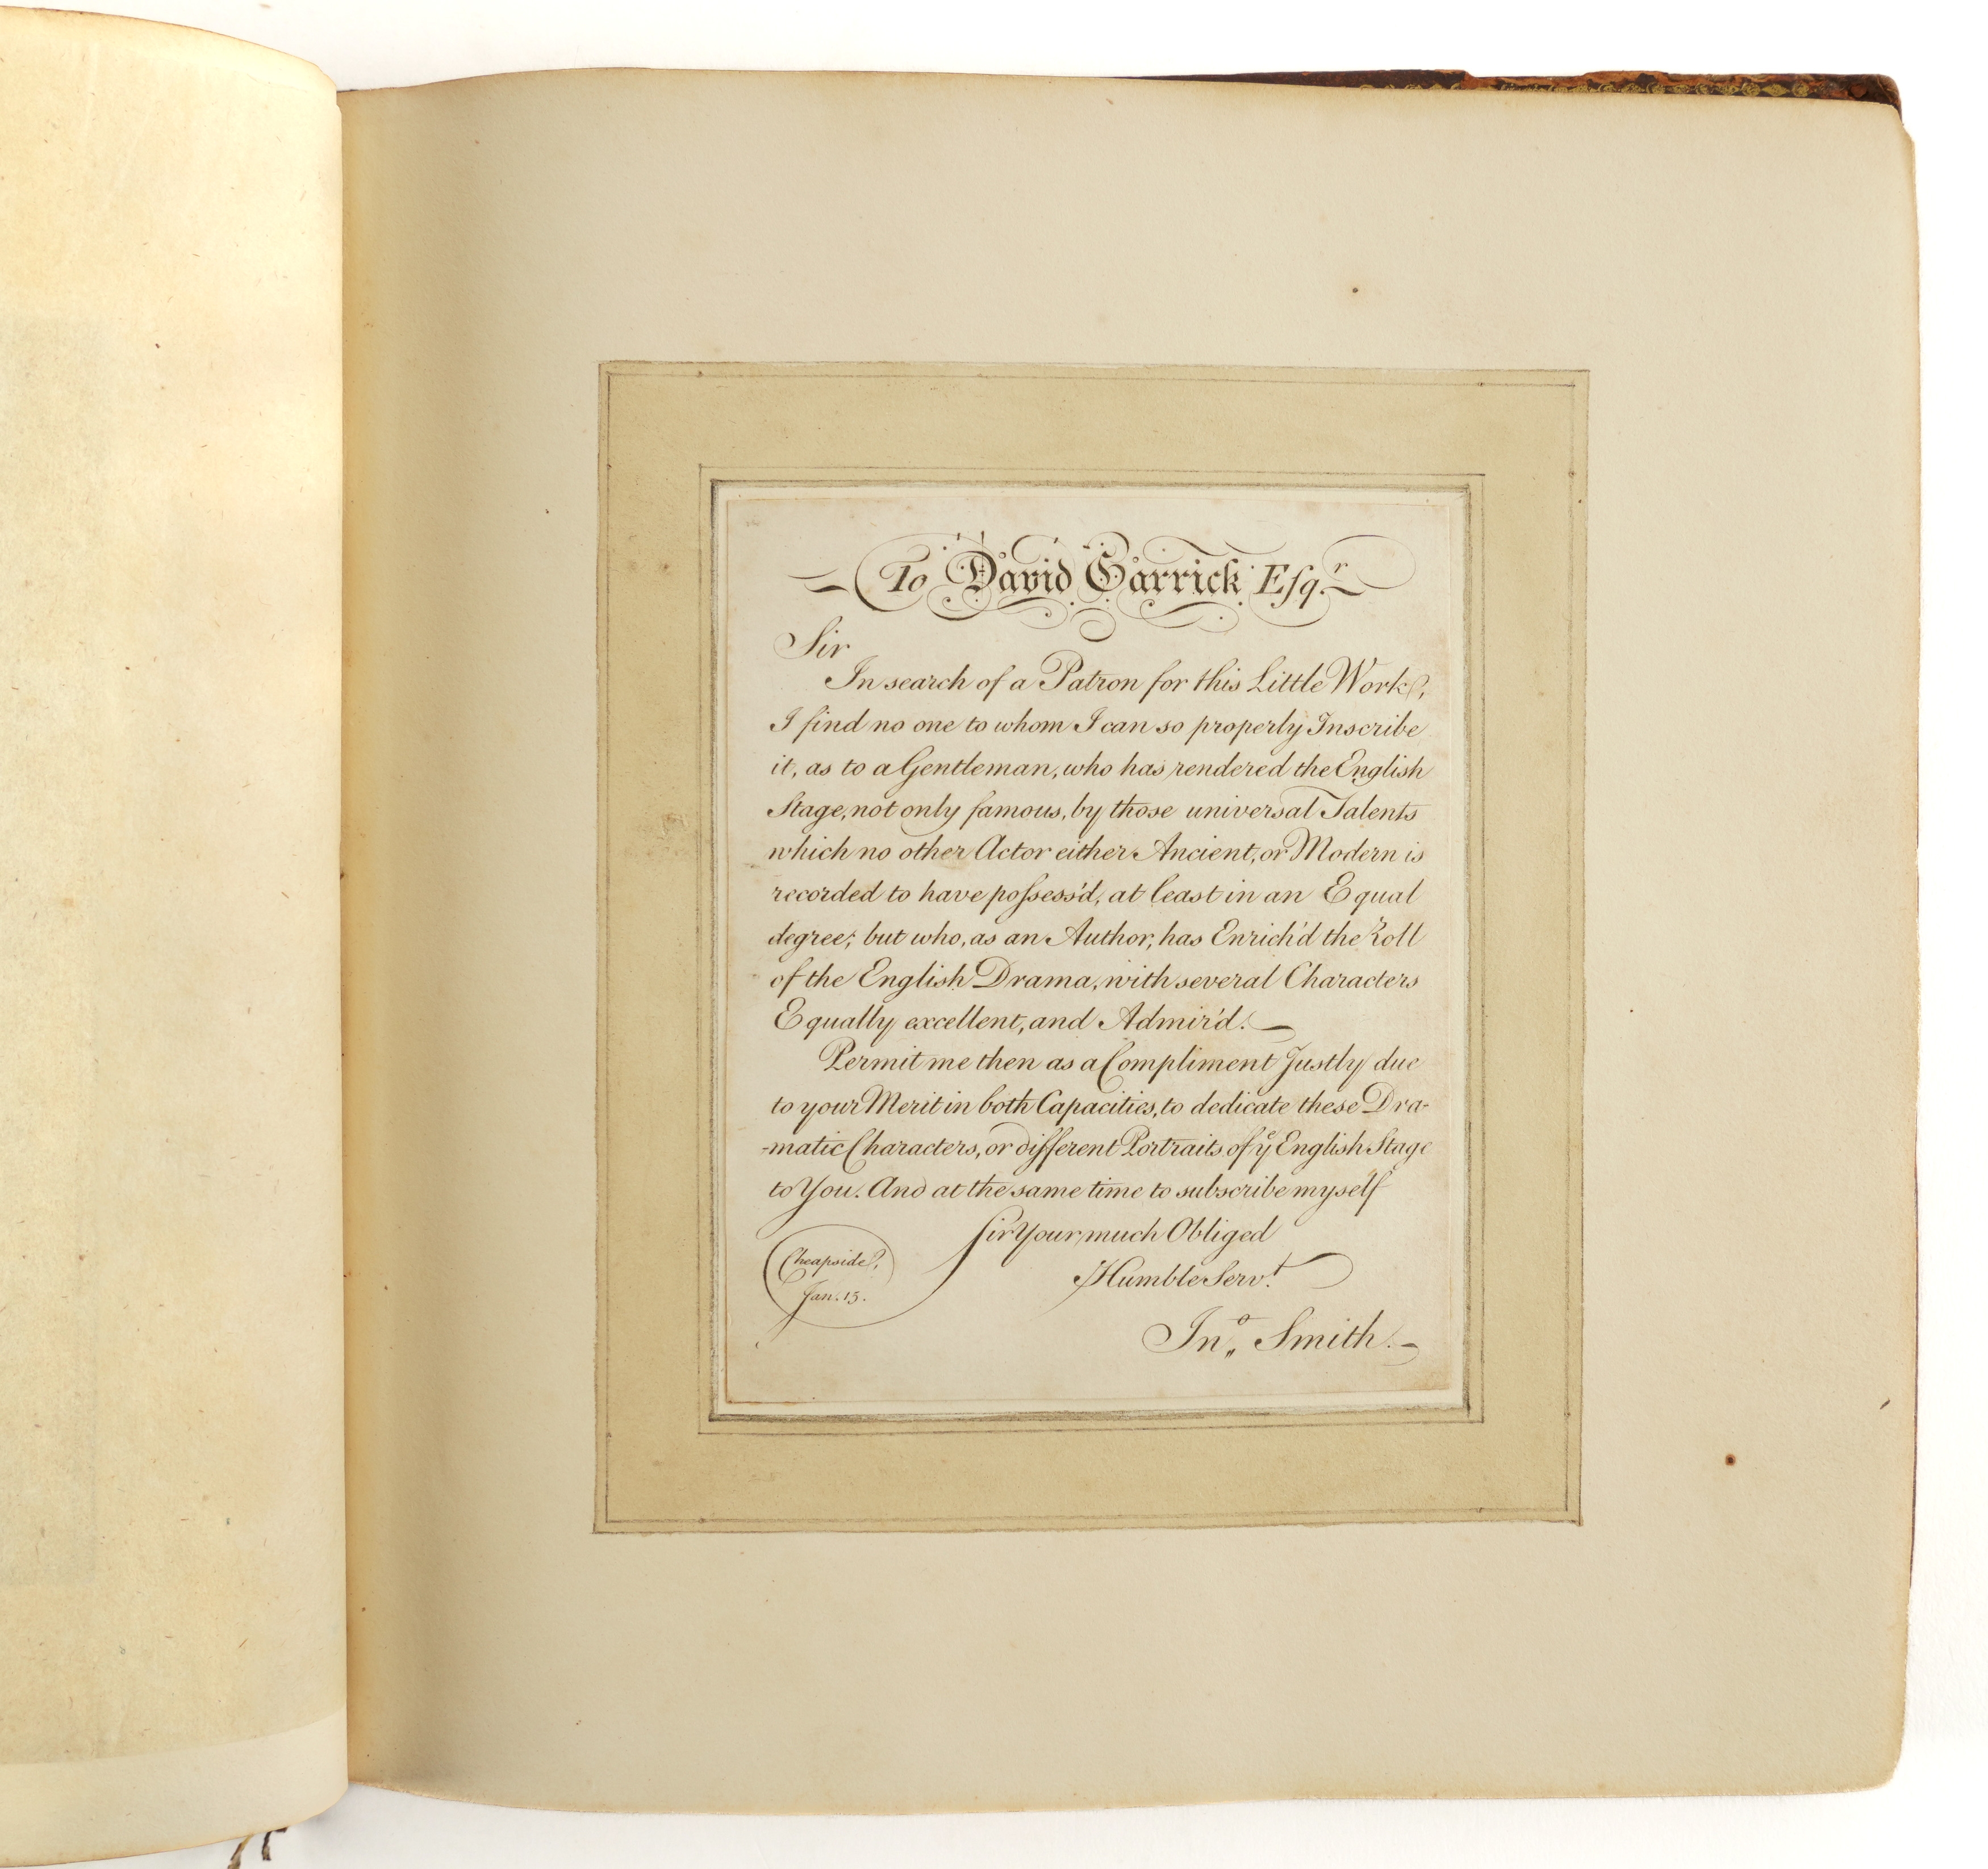 To David Garrick Esqr.
Sir
In search of a Patron for this Little Work,
I find no one to whom I can so properly Inscribe
it, as to a Gentleman, who has rendered the English
Stage, not only famous, by those universal Talents
which no other Actor either Ancient, or Modern is
recorded to have poſsess'd, at least in an Equal
degree; but who, as an Author, has Enrich'd the Roll
of the English Drama, with several Characters
Equally excellent, and Admir'd.
Permit me then as a Compliment Justly due
to your Merit in both Capacities, to dedicate these Dra-
-matic Characters, or different Portraits of ye English Stage
to You. And at the same time to subscribe myself
Sir Your much Obliged
Humble Servt.
Cheapside,
Jan. 15.
Jno. Smith.